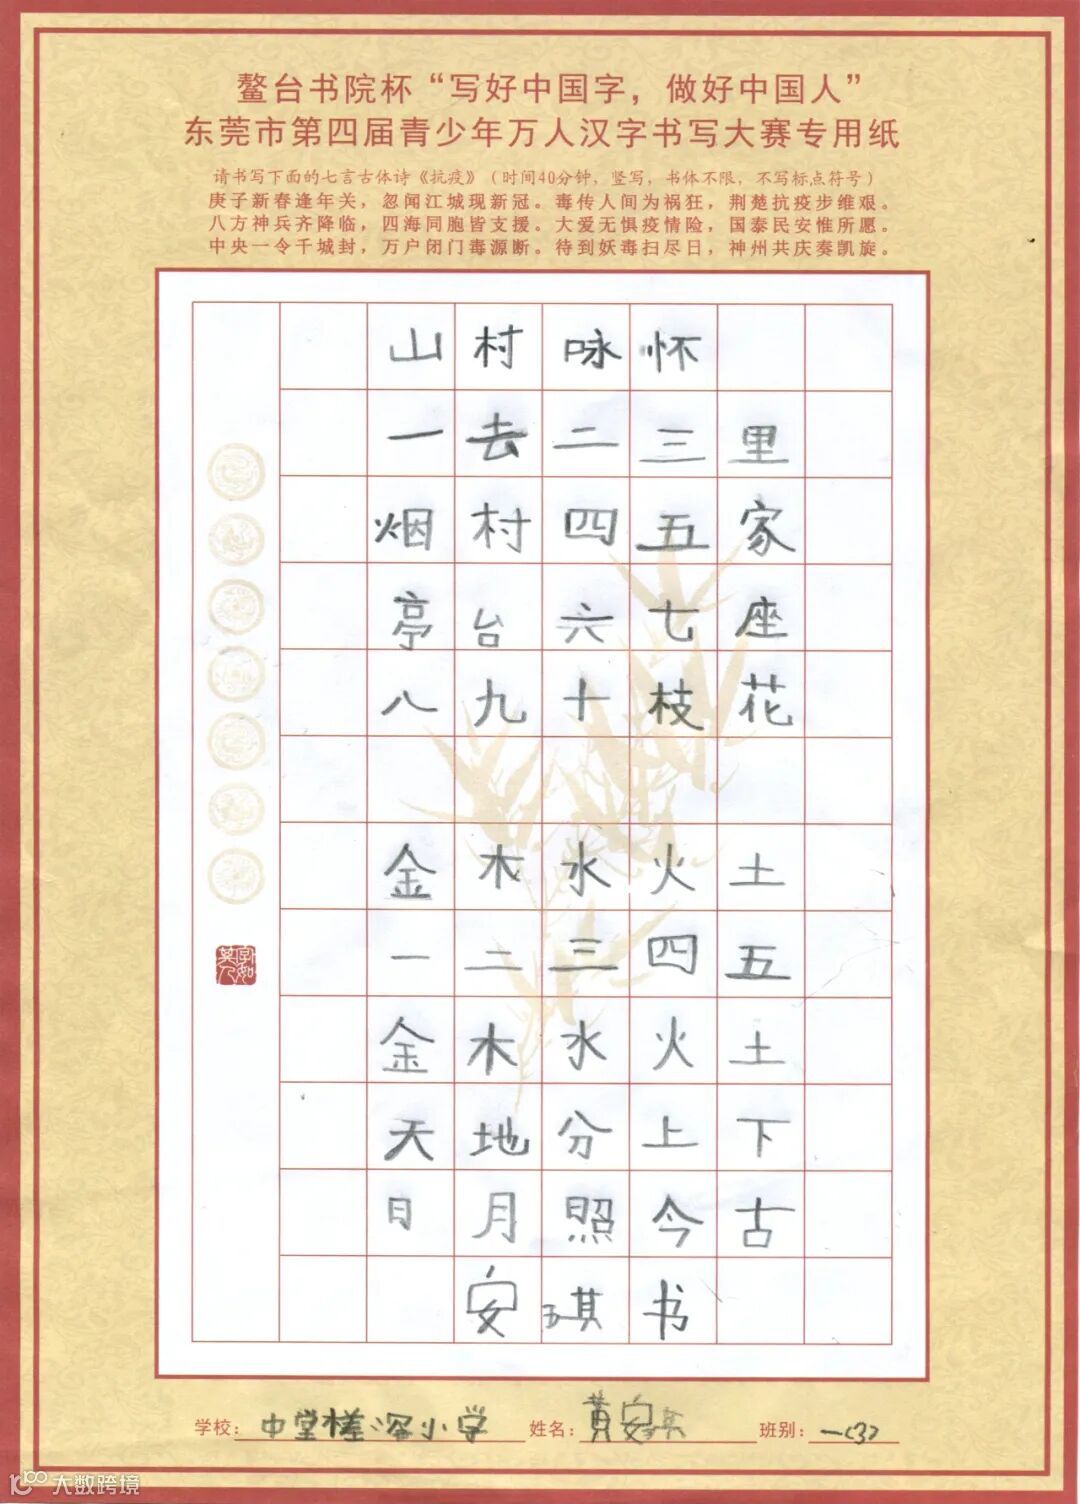 鳌台书院杯“写好中国字，做好中国人”
东莞市第四届青少年万人汉字书写大赛专用纸
请书写下面的七言古体诗《抗疫》（时间40分钟，竖写，书体不限，不写标点符号）
庚子新春逢年关，忽闻江城现新冠。毒传人间为祸狂，荆楚抗疫步维艰。
八方神兵齐降临，四海同胞皆支援。大爱无惧疫情险，国泰民安惟所愿。
中央一令千城封，万户闭门毒源断。待到妖毒扫尽日，神州共庆奏凯旋。
山村咏怀
一去二三里
烟村四五家
亭台六七座
八九十枝花
金木水火土
一二三四五
金木水火土
天地分上下
日月照今古
安琪书
学校：中堂槎滘小学 姓名：黄安琪 班别：一(3)
大数跨境